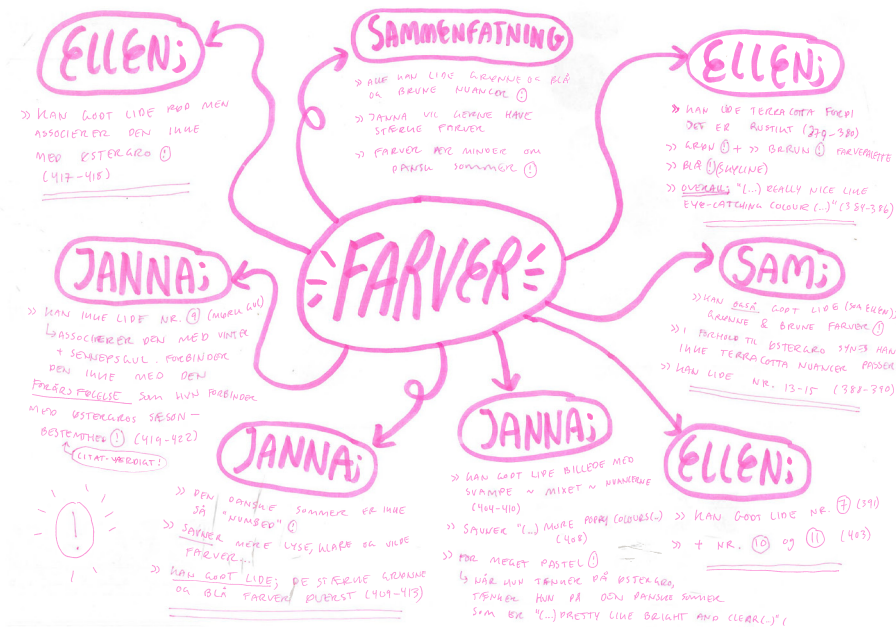 ELLEN;
» KAN GODT LIDE RØD MEN
ASSOCIERER DEN IKKE
MED ØSTERGRO !
(417-418)
SAMMENFATNING
» ALLE KAN LIDE GRØNNE OG BLÅ
OG BRUNE NUANCER !
» JANNA VIL GERNE HAVE
STÆRKE FARVER
» FARVER DER MINDER OM
DANSK SOMMER !
ELLEN;
» KAN LIDE TERRACOTTA FORDI
DET ER RUSTIKT (379-380)
» GRØN ! + » BRRUN ! FARVEPALETTE
» BLÅ ! (SKYLINE)
» OVERALL; "(...) REALLY NICE LIKE
EYE-CATCHING COLOUR (...)" (384-386)
FARVER
JANNA;
» KAN IKKE LIDE NR. 9 (MØRK GUL)
↳ ASSOCIERER DEN MED VINTER
+ SENNEPSGUL. FORBINDER
DEN IKKE MED DEN
FORÅRSFØLELSE SOM HUN FORBINDER
MED ØSTERGROS SÆSON-
BESTEMTHED ! (419-422)
CITAT-VÆRDIGT!
!
SAM;
» KAN OGSÅ GODT LIDE (SOM ELLEN);
GRØNNE & BRUNE FARVER !
» I FORHOLD TIL ØSTERGRO SYNES HAN
IKKE TERRACOTTA NUANCER PASSER
» KAN LIDE NR. 13-15 (388-390)
JANNA;
» DEN DANSKE SOMMER ER IKKE
SÅ "NUMBED" !
» SAVNER MERE LYSE, KLARE OG VILDE
FARVER...
» KAN GODT LIDE; DE STÆRKE GRØNNE
OG BLÅ FARVER ØVERST (409-413)
JANNA;
» KAN GODT LIDE BILLEDE MED
SVAMPE ~ MIXET ~ NUANCERNE
(404-410)
» SAVNER "(...) MORE POPPY COLOURS (...)
(408)
» FOR MEGET PASTEL !
↳ NÅR HUN TÆNKER PÅ ØSTERGRO,
TÆNKER HUN PÅ DEN DANSKE SOMMER
SOM ER "(...) PRETTY LIKE BRIGHT AND CLEAR (...)" (
ELLEN;
» KAN GODT LIDE NR. 7 (391)
» + NR. 10 og 11 (403)